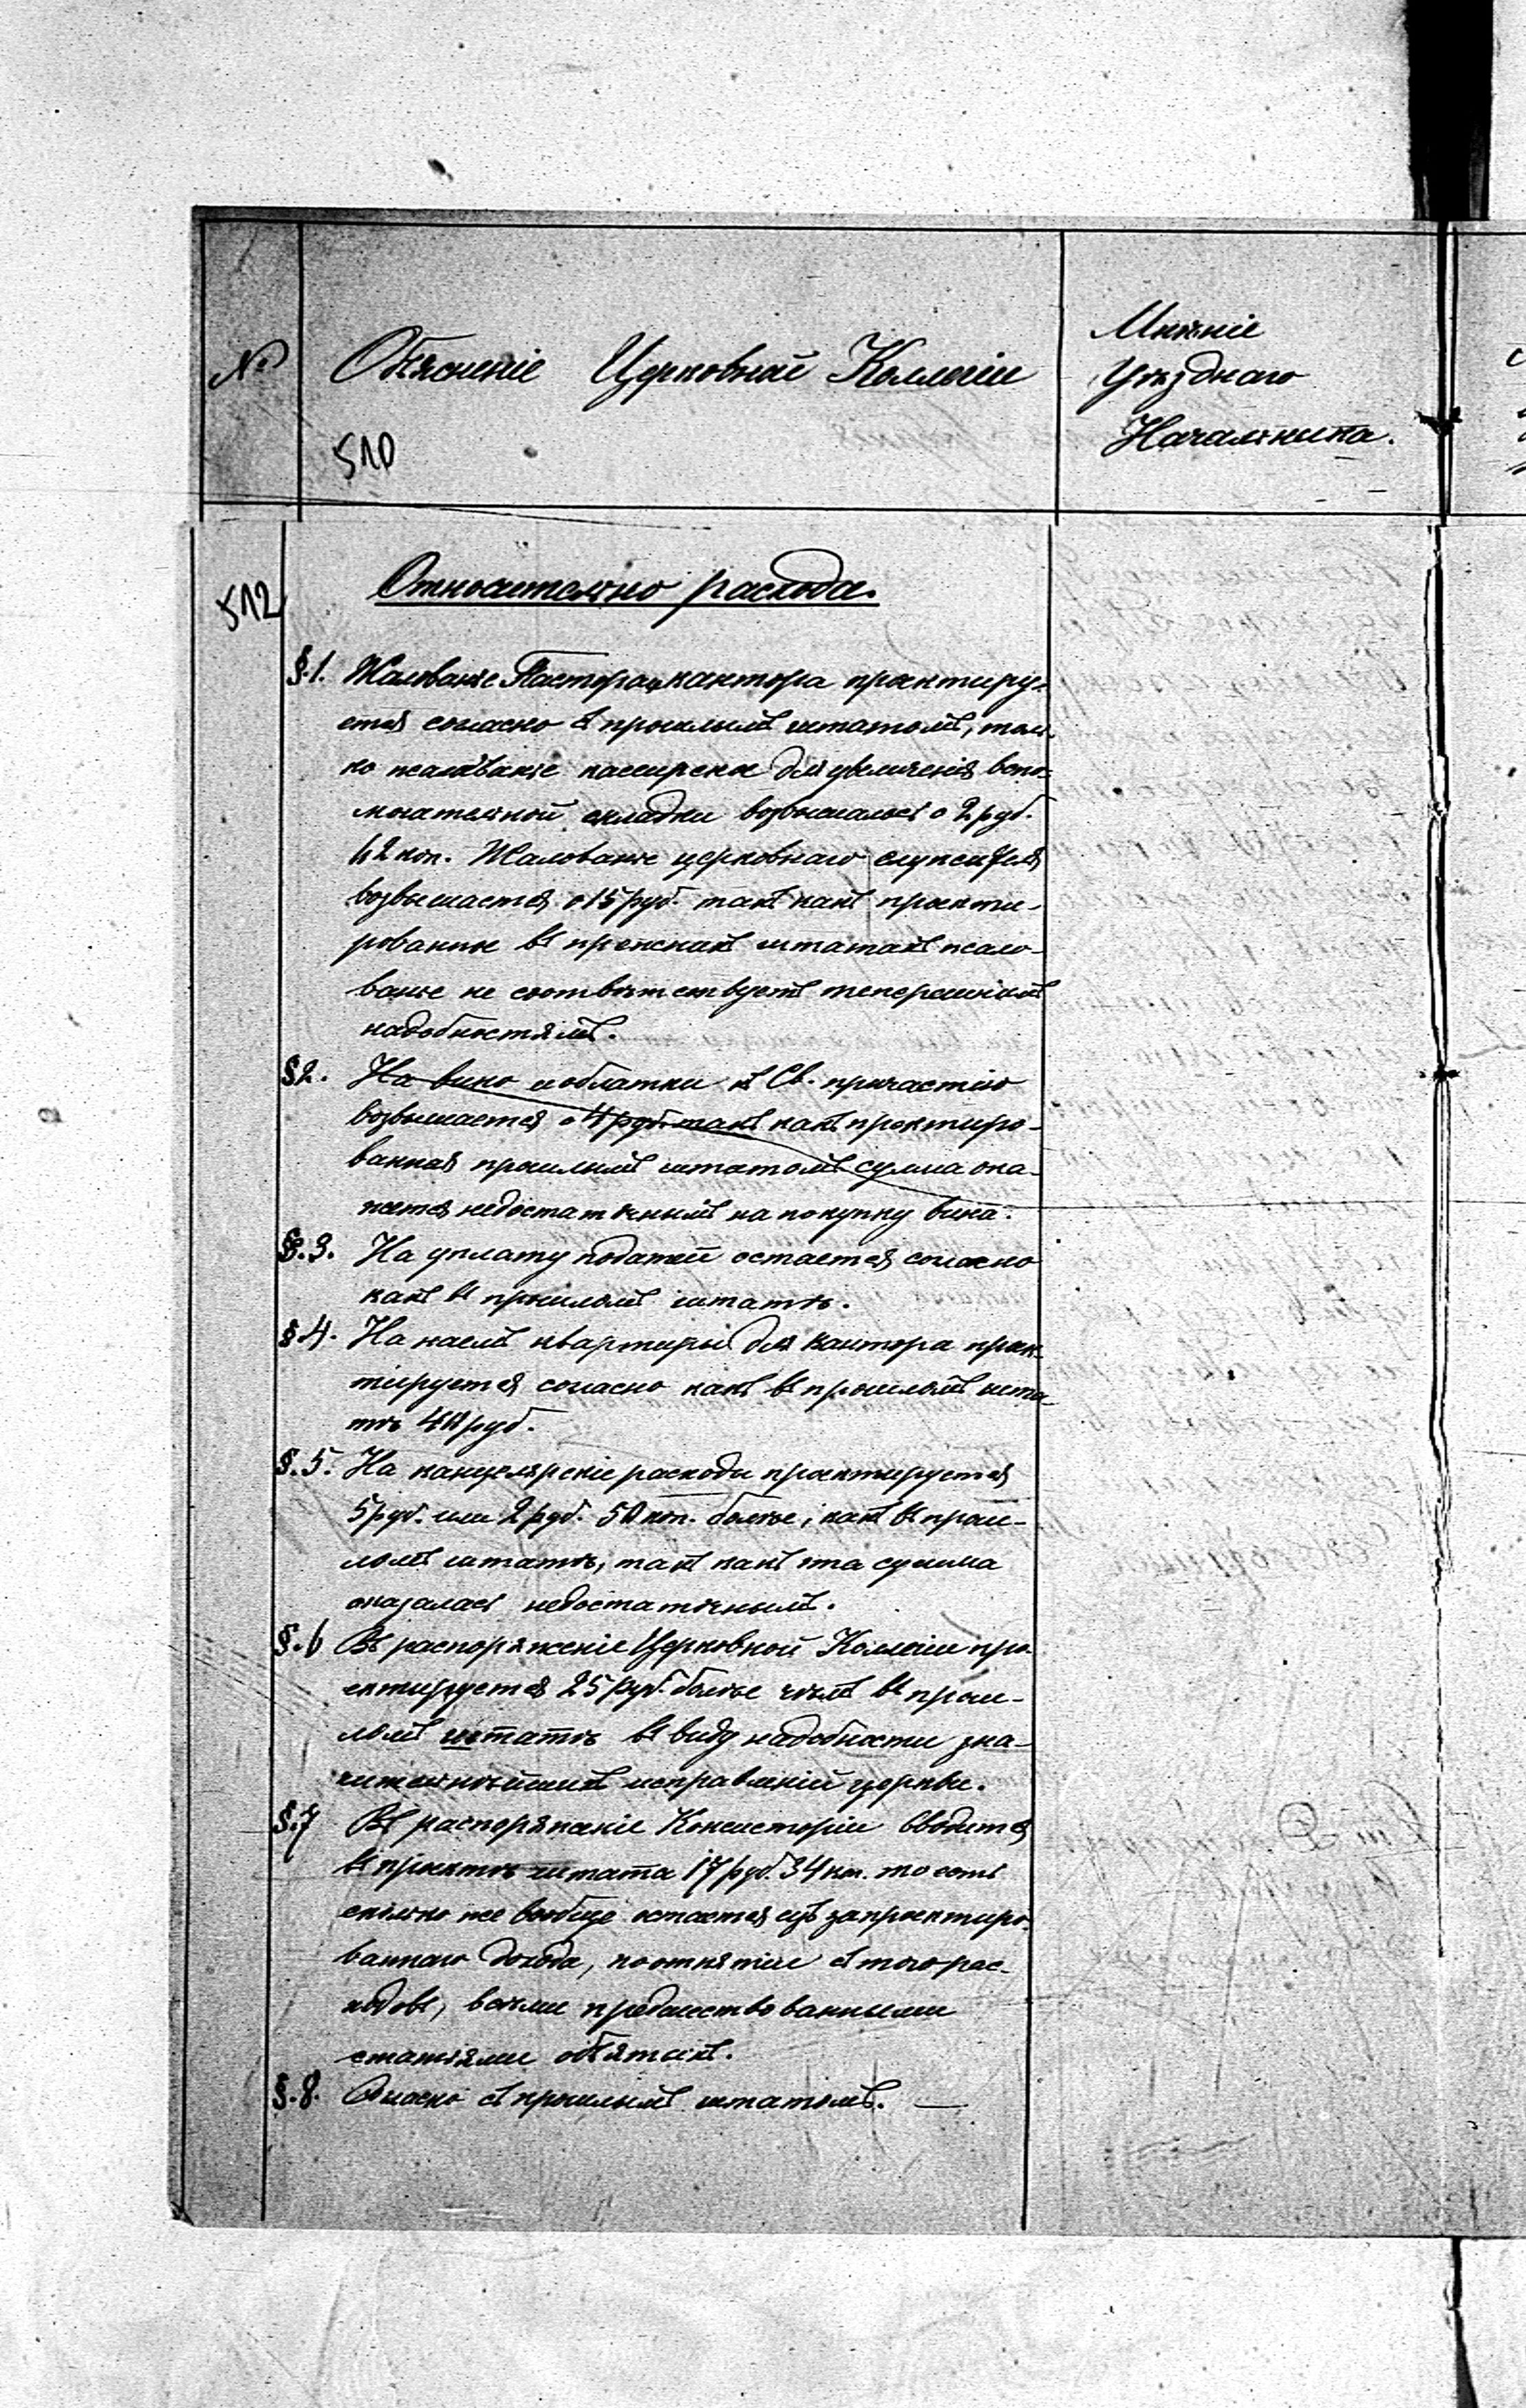 №
Объясненіе Церковной Коллегіи
510
Мнѣніе
Уѣзднаго
Начальника.
512
Относительно расхода.
§.1. Жалованье Пастора и кантора проектиру-
ется согласно съ прошлымъ штатомъ, толь-
ко жалованье кассирское для увеличенія вспо-
могательной складки возвышалось о 2 руб.
62 коп. Жалованье церковнаго служителя
возвышается о 15 руб. такъ какъ проекти-
рованное въ прежнихъ штатахъ жало-
ванье не соотвѣтствуетъ теперешнимъ
надобностямъ.
§2. На вино и облатки къ Св. причастію
возвышается о 4 руб. такъ какъ проектиро-
ванная прошлымъ штатомъ сумма ока-
жется недостаточнымъ на покупку вина.
§.3. На уплату податей остается согласно
какъ въ прошломъ штатѣ.
§4. На наемъ квартиры для кантора проек-
тируется согласно какъ въ прошломъ шта-
тѣ 40 руб.
§.5. На канцелярскіе расходы проектируется
5 руб. или 2 руб. 50 коп. болѣе, какъ въ прош-
ломъ штатѣ, такъ какъ эта сумма
оказалась недостаточнымъ.
§.6 Въ распоряженіе Церковной Коллегіи про-
ектируется 25 руб. болѣе чѣмъ въ прош-
ломъ штатѣ въ виду надобности зна-
чительнѣйшихъ исправленій церкви.
§.7 Въ распоряженіе Консисторіи вводится
въ проектъ штата 17 руб. 34 коп. то есть
сколько же вообще остается изъ запроектиро-
ваннаго дохода, по отнятіи съ того рас-
ходовъ, всѣми предшествованными
статьями объятыхъ.
§.8. Одинако съ прошлымъ штатомъ. —